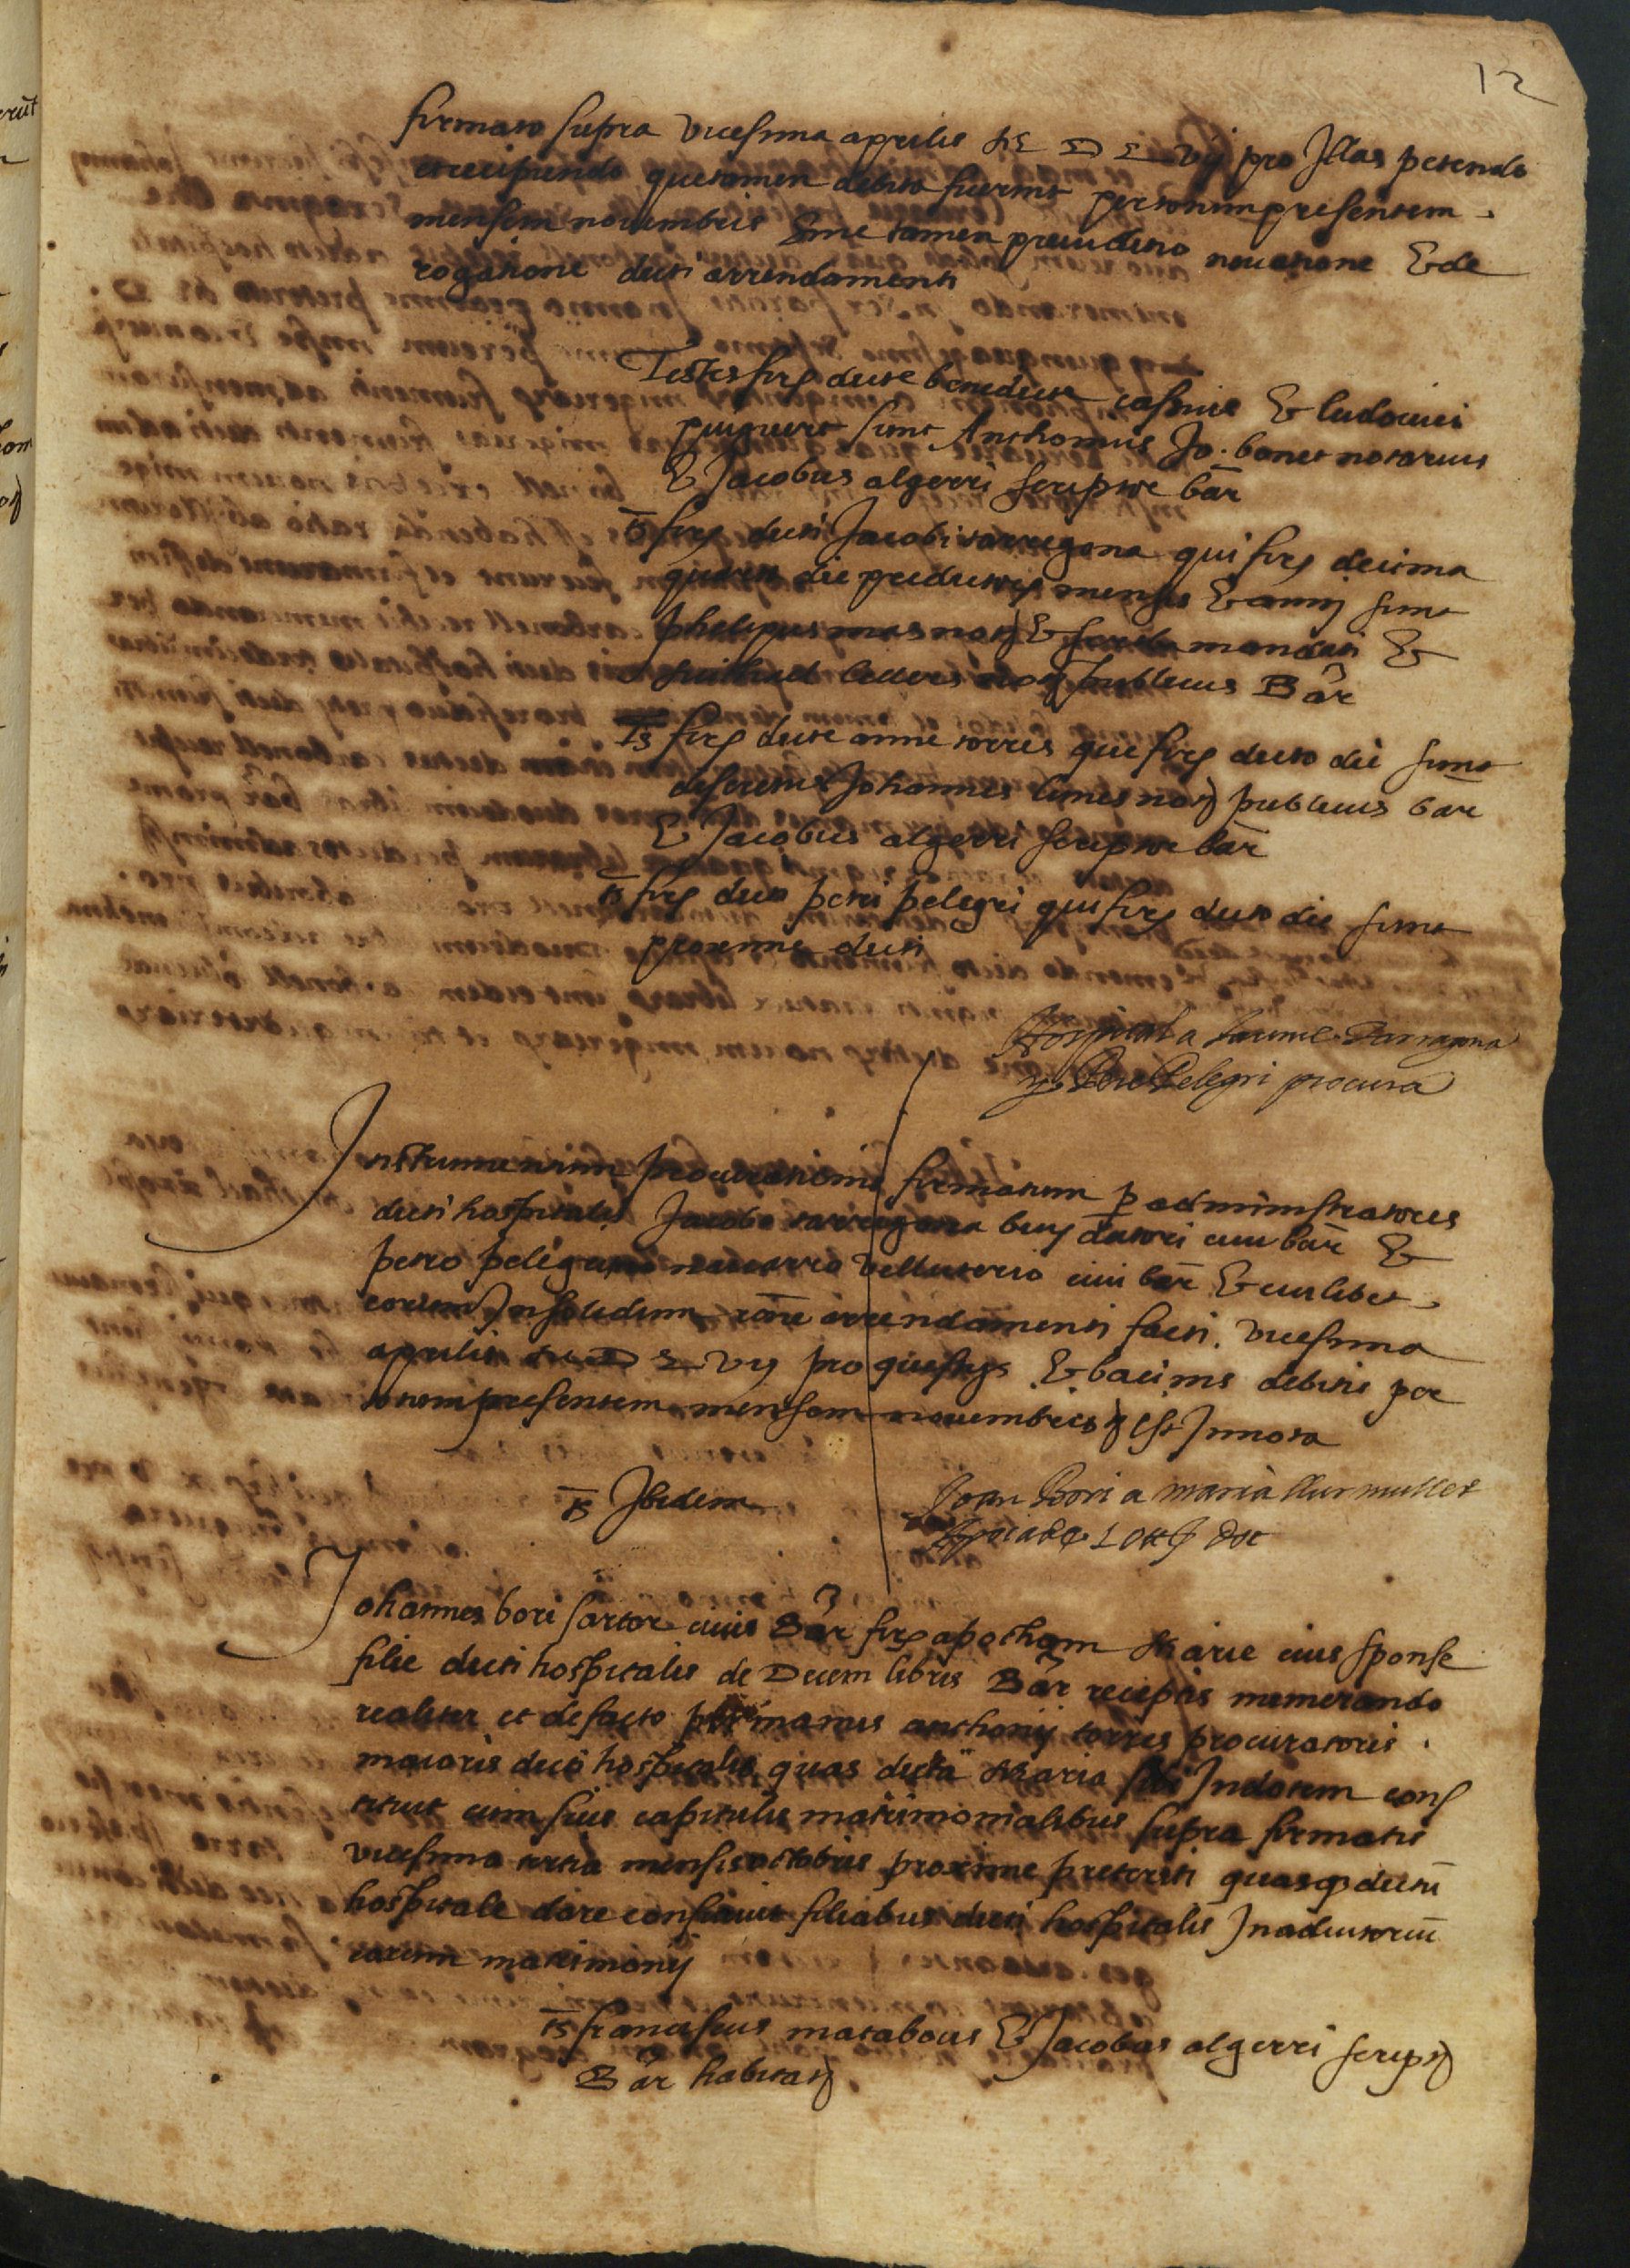 12
firmato supra vicesima aprilis M D L vij pro Illas petendo
et recipiendo que tamen debita fuerint per totum presentem
mensem novembris Sine tamen preiuditio novatione & de
rogatione dicti arrendamenti
Testes firę dicte benedicte & ludovici
sunt Anthonius Jo. bonet notarius
& Jacobus algerri scriptor bar̄
Ts̄ firę dicti Jacobi tarregona qui firę decima
quarta die predictorę mensis & anni sunt
phelipus mas notę & scriba mandati &
notę publicus Bar̄
Ts̄ firę dicte anne torres que firę dicto die sunt
discretus Johannes notę publicus bar̄
& Jacobus algerri scriptor bar̄
Ts̄ firę dicto petri pelegri qui firę dicto die sunt
proxime dicti
Hospital a Jaume Tarragona
y Pere Pelegri procura
Instrumentum procurationis firmatum p̱ administratores
dicti hospitalis Jacobo tarregona civi bar̄ &
petro pelegri navarro velluterio civi bar̄ & cuilibet
eorum Insolidum rōne arrendamenti facti vicesima
aprilis M D L vij pro questijs & bacinis debitis per
totum presentem mensem novembris est In nota
Ts̄ Ibidem
Joan Bori a maria
Apocha de 10 ℔
Johannes bori sartor civis Bar̄ firę apocham Marie eius sponse
filie dicti hospitalis de Decem libris Bar̄ receptis numerando
realiter et de facto per manus anthonij torres procuratoris
maioris dicti hospitalis quas dicta Maria sibi Indotem cons
tituit cum suis capitulis matrimonialibus supra firmatis
vicesima tertia mensis octobris proxime preteriti quasq̱ dictū
hospitale dare consuevit filiabus dicti hospitalis Inadiutoriū
earum matrimonij
Ts̄ franciscus matabous & Jacobus algerri scriptę
Bar̄ habitatę